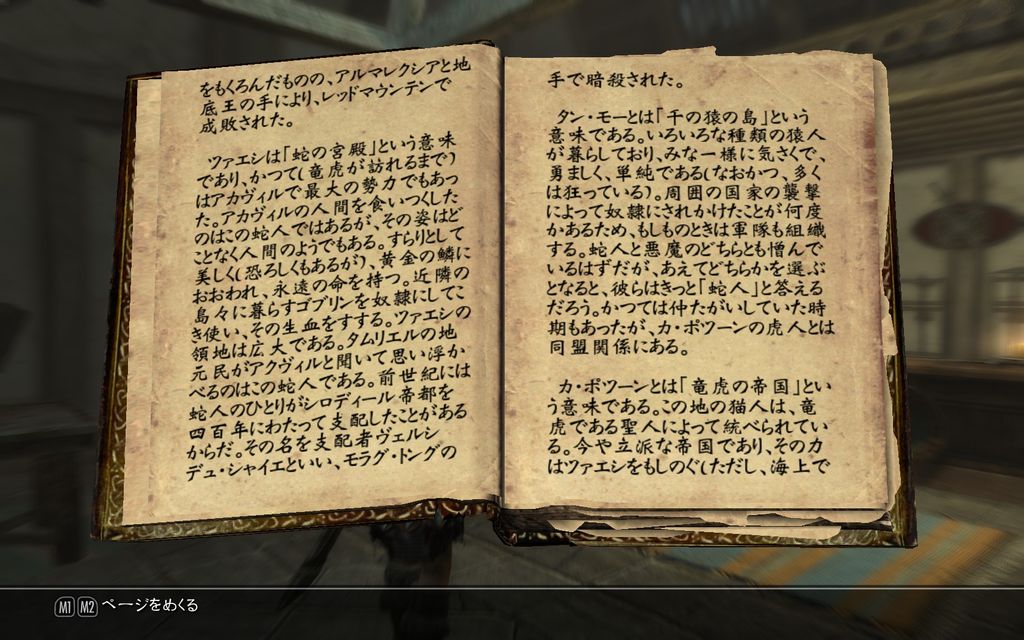 をもくろんだものの、アルマレクシアと地
底王の手により、レッドマウンテンで
成敗された。
ツァエシは「蛇の宮殿」という意味
であり、かつて(竜虎が訪れるまで)
はアカヴィルで最大の勢力でもあっ
た。アカヴィルの人間を食いつくした
のはこの蛇人ではあるが、その姿はど
ことなく人間のようでもある。すらりとして
美しく(恐ろしくもあるが)、黄金の鱗に
おおわれ、永遠の命を持つ。近隣の
島々に暮らすゴブリンを奴隷にしてこ
き使い、その生血をすする。ツァエシの
領地は広大である。タムリエルの地
元民がアクヴィルと聞いて思い浮か
べるのはこの蛇人である。前世紀には
蛇人のひとりがシロディール帝都を
四百年にわたって支配したことがある
からだ。その名を支配者ヴェルシ
デュ・シャイエといい、モラグ・トングの
手で暗殺された。
タン・モーとは「千の猿の島」という
意味である。いろいろな種類の猿人
が暮らしており、みな一様に気さくで、
勇ましく、単純である(なおかつ、多く
は狂っている)。周囲の国家の襲撃
によって奴隷にされかけたことが何度
かあるため、もしものときは軍隊も組織
する。蛇人と悪魔のどちらとも憎んで
いるはずだが、あえてどちらかを選ぶ
となると、彼らはきっと「蛇人」と答える
だろう。かつては仲たがいしていた時
期もあったが、カ・ポツーンの虎人とは
同盟関係にある。
カ・ポツーンとは「竜虎の帝国」とい
う意味である。この地の猫人は、竜
虎である聖人によって統べられてい
る。今や立派な帝国であり、その力
はツァエシをもしのぐ(ただし、海上で
M1 M2 ページをめくる